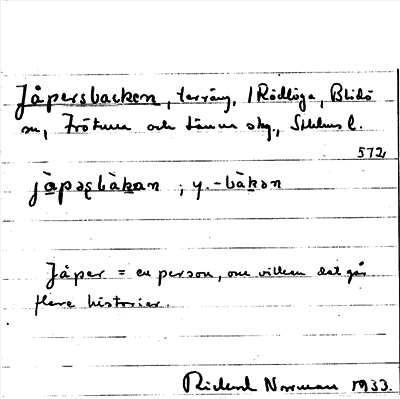 Jåpersbacken, terräng, i Rödlöga, Blidö
sn, Frötuna och Länna skg, Sthlms l.
572
jå̀pəʂbàkan ; y. -bàkən
Jåper = en person, om vilken det går
flera historier.
Rickard Norrman 1933.